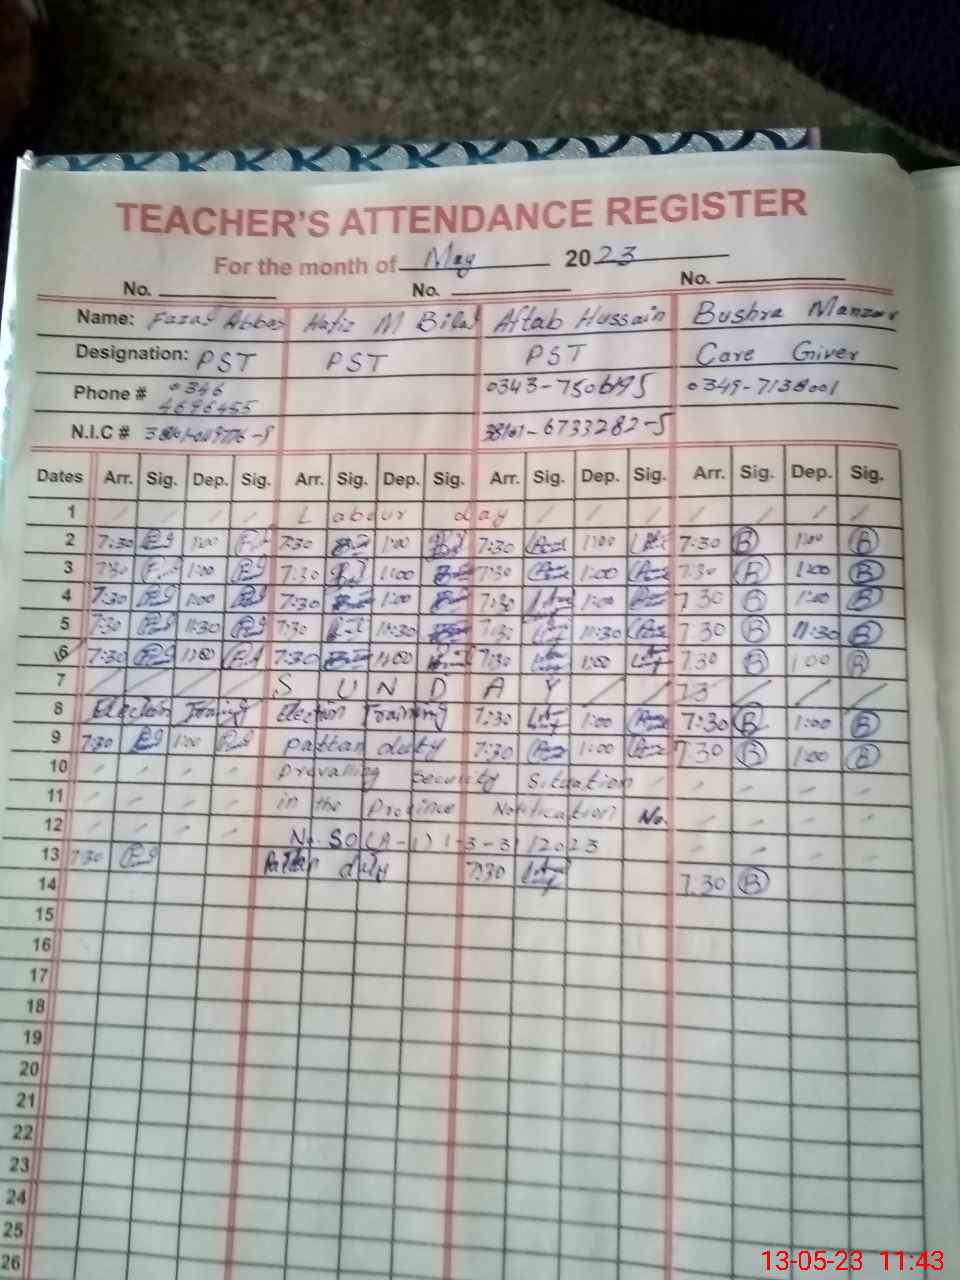 TEACHER'S ATTENDANCE REGISTER
For the month of May 2023
No. No. No.
Name: Fazal Abbas Hafiz M Bilal Aftab Hussain Bushra Manzoor
Designation: PST PST PST Care Giver
Phone # 0346 4696455 0343-7506195 0349-7138001
N.I.C # 38101-6733282-5
Dates Arr. Sig. Dep. Sig. Arr. Sig. Dep. Sig. Arr. Sig. Dep. Sig. Arr. Sig. Dep. Sig.
1 Labour day
2 7:30 1:00 7:30 1:00 7:30 1:00 7:30 B 1:00 B
3 7:30 1:00 7:30 1:00 7:30 1:00 7:30 B 1:00 B
4 7:30 1:00 7:30 1:00 7:30 1:00 7.30 B 1:00 B
5 7:30 11:30 7:30 11:30 7:30 11:30 7.30 B 11:30 B
6 7:30 1:00 7:30 1:00 7:30 1:00 7.30 B 1:00 B
7 S U N D A Y
8 Election Training Election Training 7:30 1:00 7:30 B 1:00 B
9 7:30 1:00 pattan duty 7:30 1:00 7.30 B 1:00 B
10 prevailing Security Situation
11 in the Province Notification No.
12 No. SO(A-1) 1-3-31/2023
13 7:30 Pattan duty 7:30 7.30 B
14
15
16
17
18
19
20
21
22
23
24
25
26
13-05-23 11:43